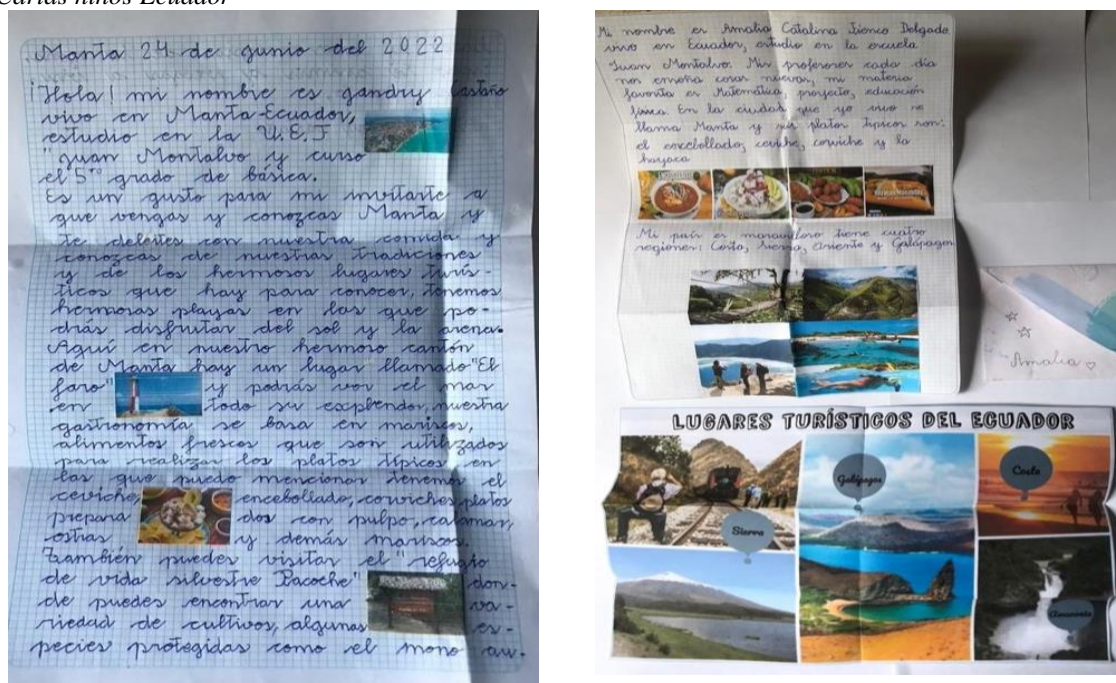 Cartas niños Ecuador
Manta 24 de junio del 2022
¡Hola! mi nombre es gandry castaño
vivo en Manta-Ecuador,
estudio en la U.E.F
"Juan Montalvo y curso
el 5to grado de básica.
Es un gusto para mi invitarte a
que vengas y conozcas Manta y
te deleites con nuestra comida y
conozcas de nuestras tradiciones
y de los hermosos lugares turís-
ticos que hay para conocer, tenemos
hermosas playas en las que po-
drás disfrutar del sol y la arena.
Aquí en nuestro hermoso cantón
de Manta hay un lugar llamado "El
faro" y podrás ver el mar
en todo su explendor, nuestra
gastronomía se basa en mariscos,
alimentos frescos que son utilizados
para realizar los platos típicos en
las que puedo mencionar tenemos el
ceviche, encebollado, corviches, platos
prepara dos con pulpo, calamar,
ostras y demás mariscos.
También puedes visitar el "refugio
de vida silvestre Pacoche" don-
de puedes encontrar una va-
riedad de cultivos, algunas es-
pecies protegidas como el mono au-
Mi nombre es Amalia Catalina Delgado
vivo en Ecuador, estudio en la escuela
Juan Montalvo. Mis profesores cada día
nos enseña cosas nuevas, mi materia
favorita es Matemática, proyecto, educación
física. En la ciudad que yo vivo se
llama Manta y sus platos típicos son:
el encebollado, ceviche, corviche y la
hayaca
Mi país es maravilloso tiene cuatro
regiones: Costa, Sierra, oriente y Galápagos
Amalia
LUGARES TURÍSTICOS DEL ECUADOR
Sierra
Galápagos
Costa
Amazonía